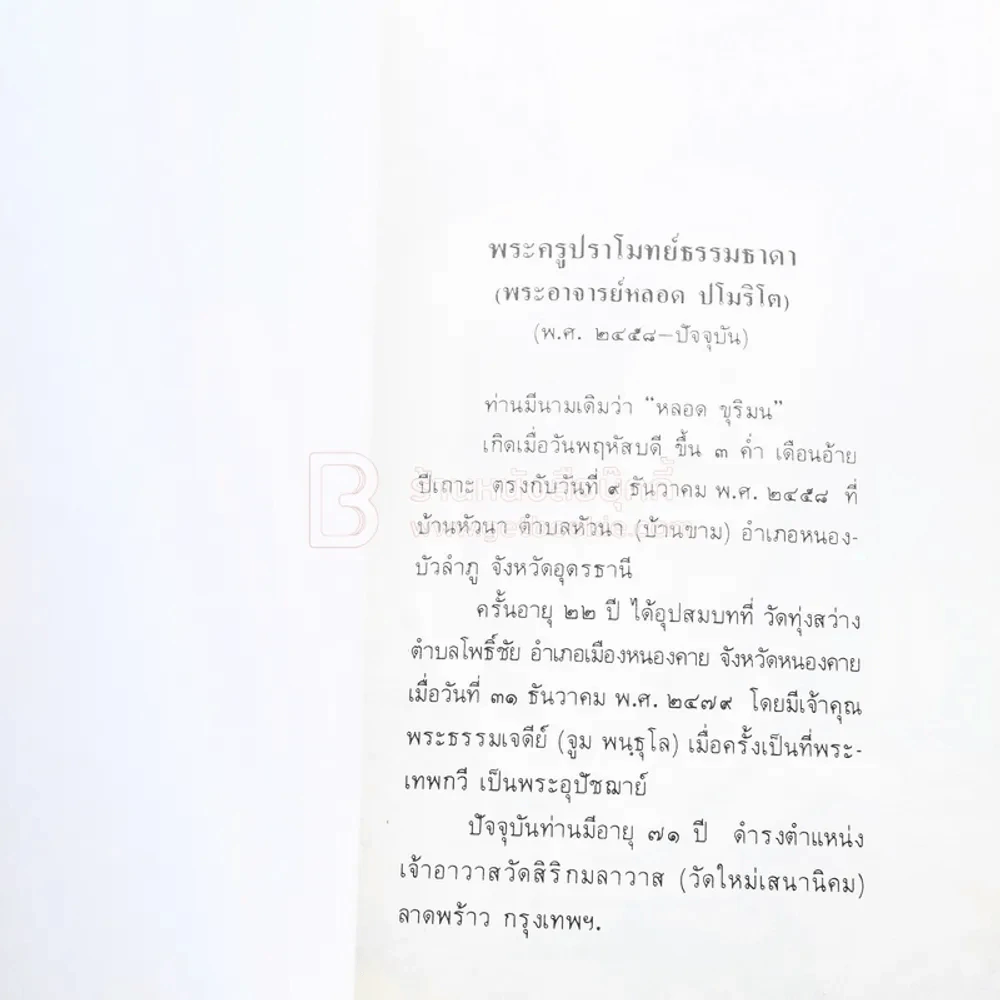 พระครูปราโมทย์ธรรมธาดา
(พระอาจารย์หลอด ปโมริโต)
(พ.ศ. ๒๔๕๘–ปัจจุบัน)
ท่านมีนามเดิมว่า “หลอด ขุริมน”
เกิดเมื่อวันพฤหัสบดี ขึ้น ๓ ค่ำ เดือนอ้าย
ปีเถาะ ตรงกับวันที่ ๙ ธันวาคม พ.ศ. ๒๔๕๘ ที่
บ้านหัวนา ตำบลหัวนา (บ้านขาม) อำเภอหนอง-
บัวลำภู จังหวัดอุดรธานี
ครั้นอายุ ๒๒ ปี ได้อุปสมบทที่ วัดทุ่งสว่าง
ตำบลโพธิ์ชัย อำเภอเมืองหนองคาย จังหวัดหนองคาย
เมื่อวันที่ ๓๑ ธันวาคม พ.ศ. ๒๔๗๙ โดยมีเจ้าคุณ
พระธรรมเจดีย์ (จูม พนฺธุโล) เมื่อครั้งเป็นที่พระ-
เทพกวี เป็นพระอุปัชฌาย์
ปัจจุบันท่านมีอายุ ๗๑ ปี ดำรงตำแหน่ง
เจ้าอาวาสวัดสิริกมลาวาส (วัดใหม่เสนานิคม)
ลาดพร้าว กรุงเทพฯ.